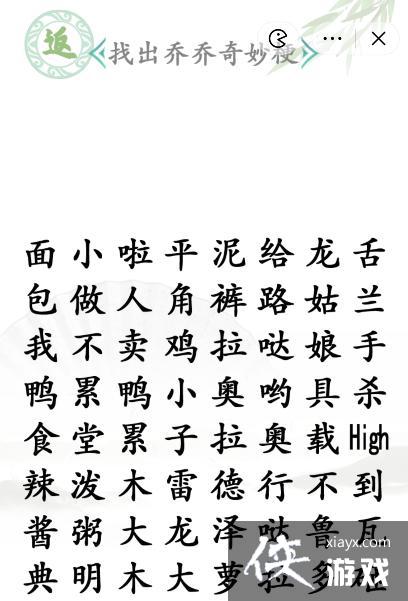 返 找出乔乔奇妙梗
面小啦平泥给龙舌
包做人角裤路姑兰
我不卖鸡拉哒娘手
鸭累鸭小奥哟具杀
食堂累子拉奥载High
辣泼木雷德行不到
酱粥大龙泽哒鲁瓦
典明木大萝拉多
侠 xiayx.com 游戏